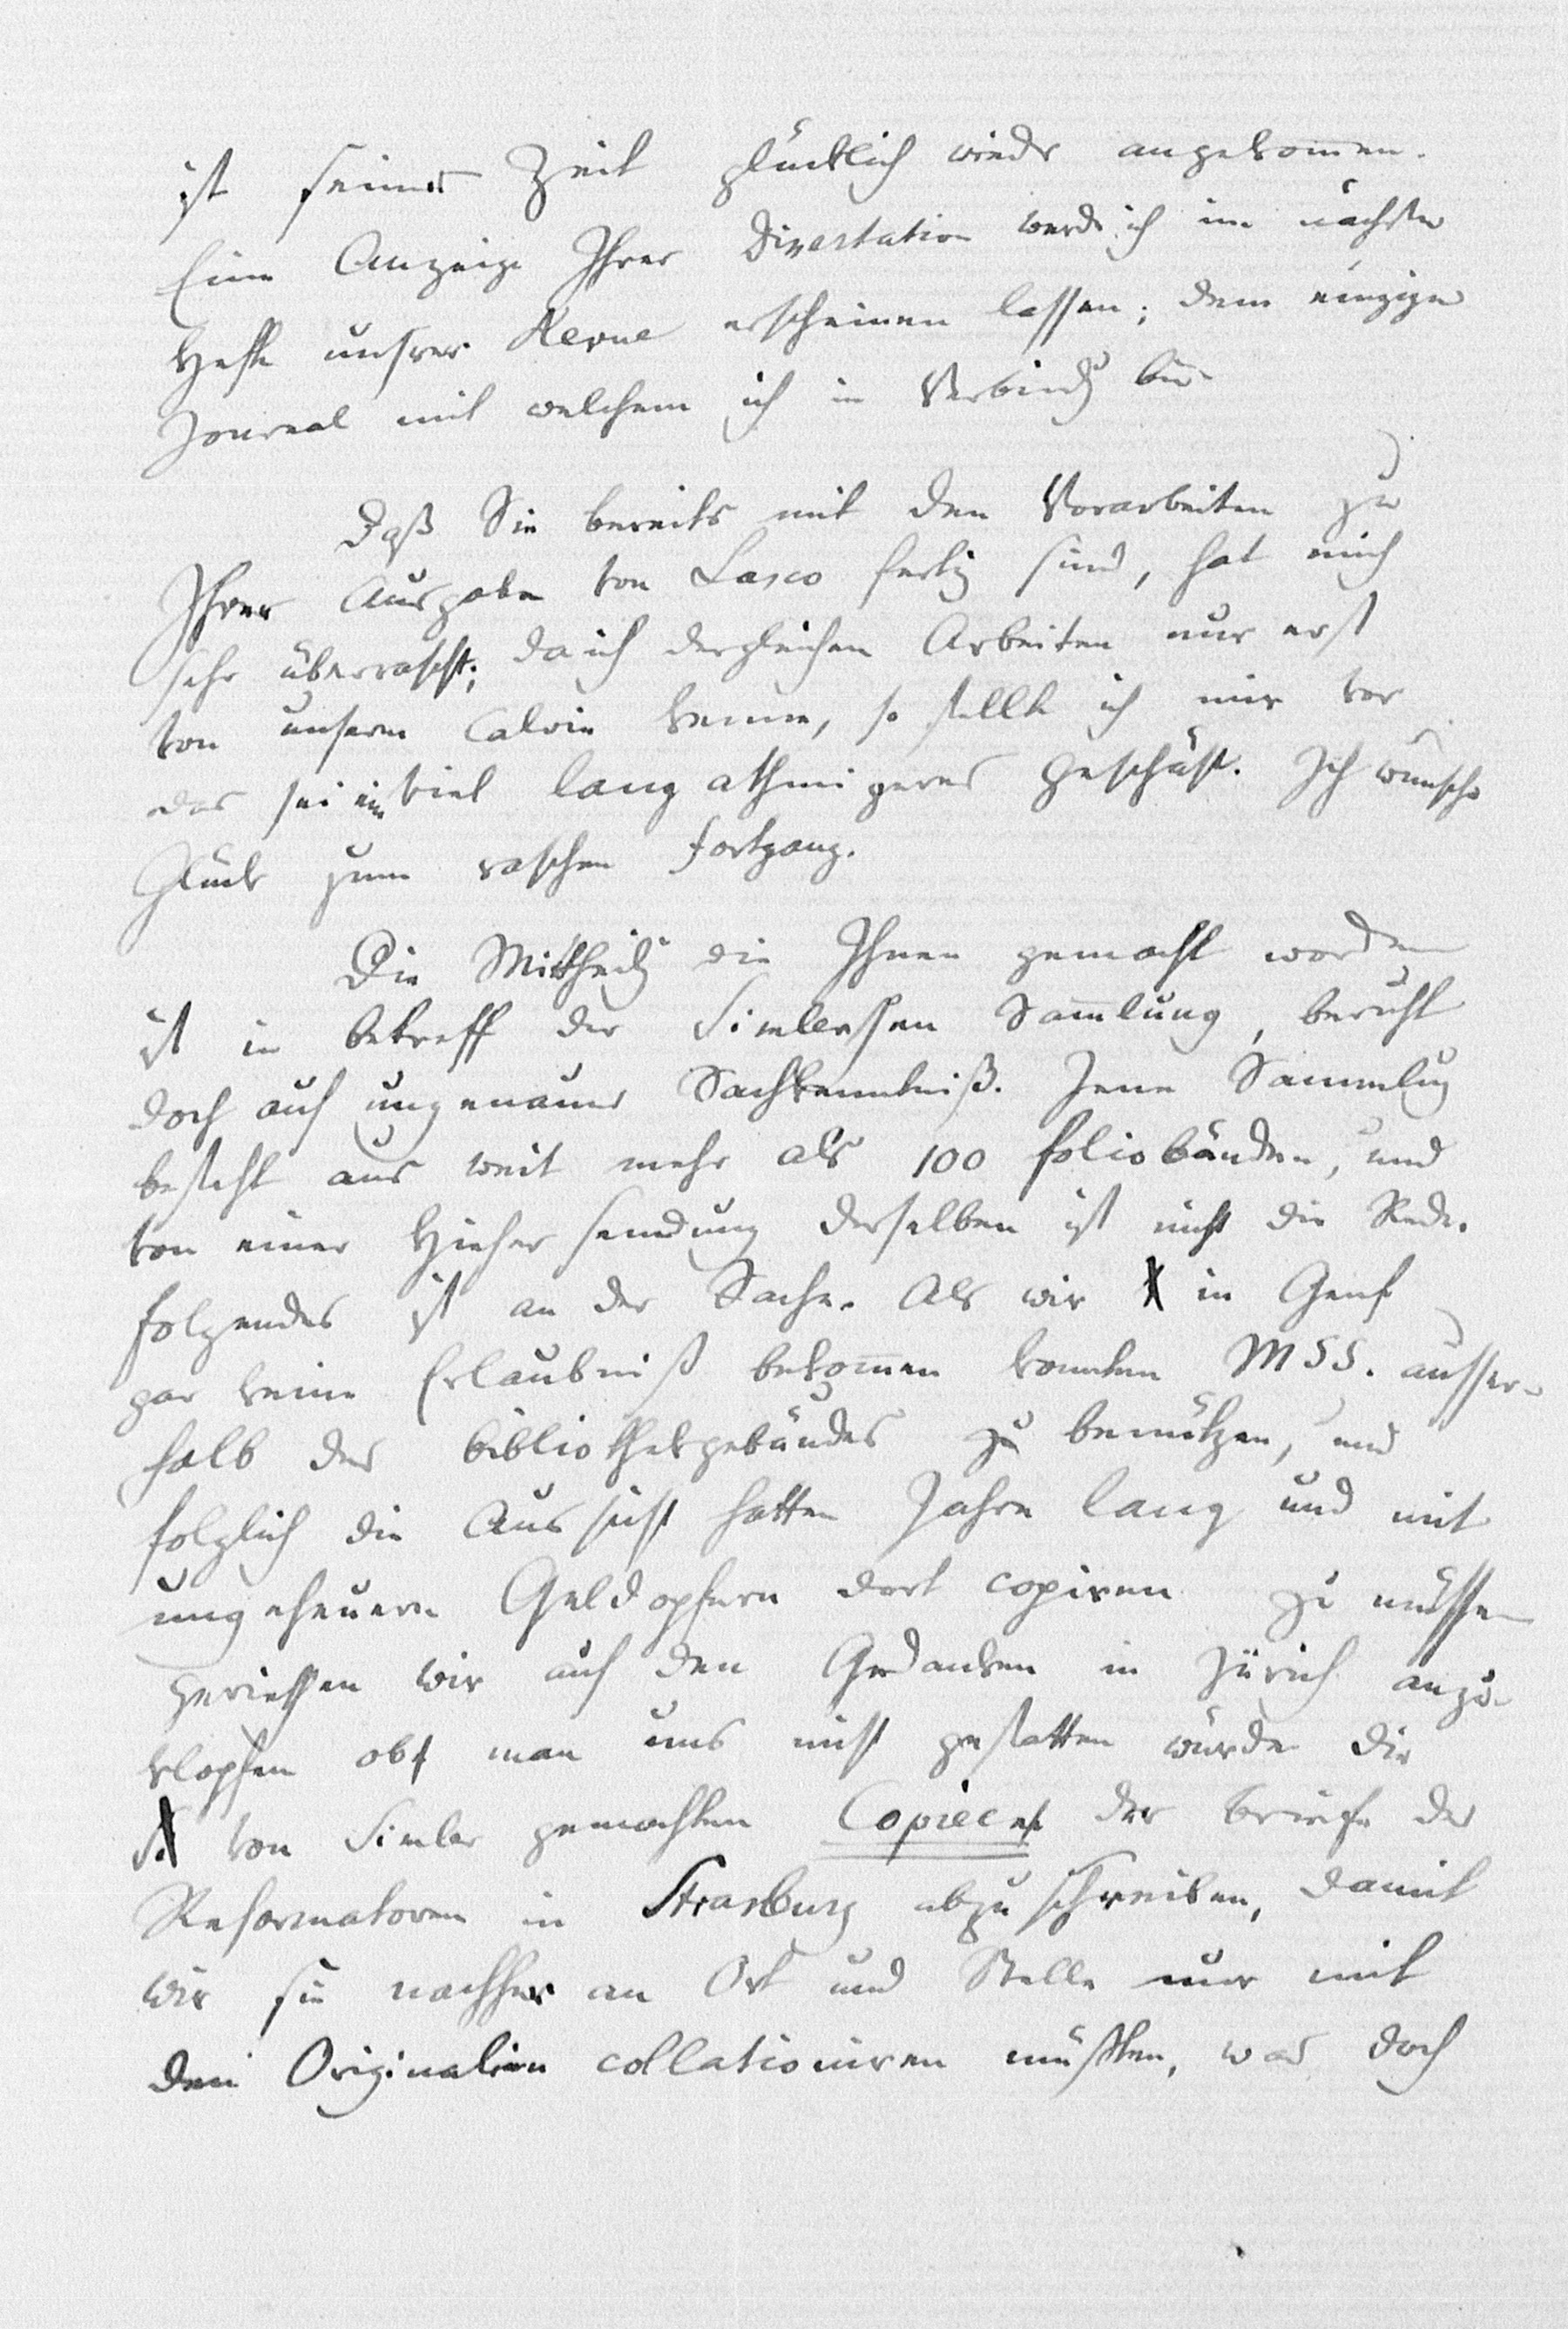 ist seiner Zeit glücklich wieder angekom̅en.
Eine Anzeige Ihrer Dissertation werde ich im nächsten
Hefte unsrer Revue erscheinen lassen; dem einzigen
Journal mit welchem ich in Verbindg bin.
Daß Sie bereits mit den Vorarbeiten zu
Ihrer Ausgabe von Lasco fertig sind, hat mich
sehr überrascht; da ich dergleichen Arbeiten nur erst
von unserm Calvin kenne, so stellte ich mir vor
das sei ein viel langathmigeres Geschäft. Ich wünsche
Glück zum raschen Fortgang.
Die Mittheilg die Ihnen gemacht worden
ist in betreff der Simlerschen Sam̅lung, beruht
doch auf ungenauer Sachkenntniß. Jene Sammlung
besteht aus weit mehr als 100 foliobänden, und
von einer Hiehersendung derselben ist nicht die Rede.
Folgendes ist an der Sache. Als wir in Genf
gar keine Erlaubniß bekom̅en konnten MSS. ausser-
halb des bibliothekgebäudes zu benützen, und
folglich die Aussicht hatten Jahre lang und mit
ungeheuern Geldopfern dort copiren zu müssen
geriethen wir auf den Gedanken in Zürich anzu-
klopfen ob man uns nicht gestatten würde die
von Simler gemachten Copieen der briefe der
Reformatoren in Strasburg abzuschreiben, damit
wir sie nachher an Ort und Stelle nur mit
den Originalien collationiren müßten, was doch